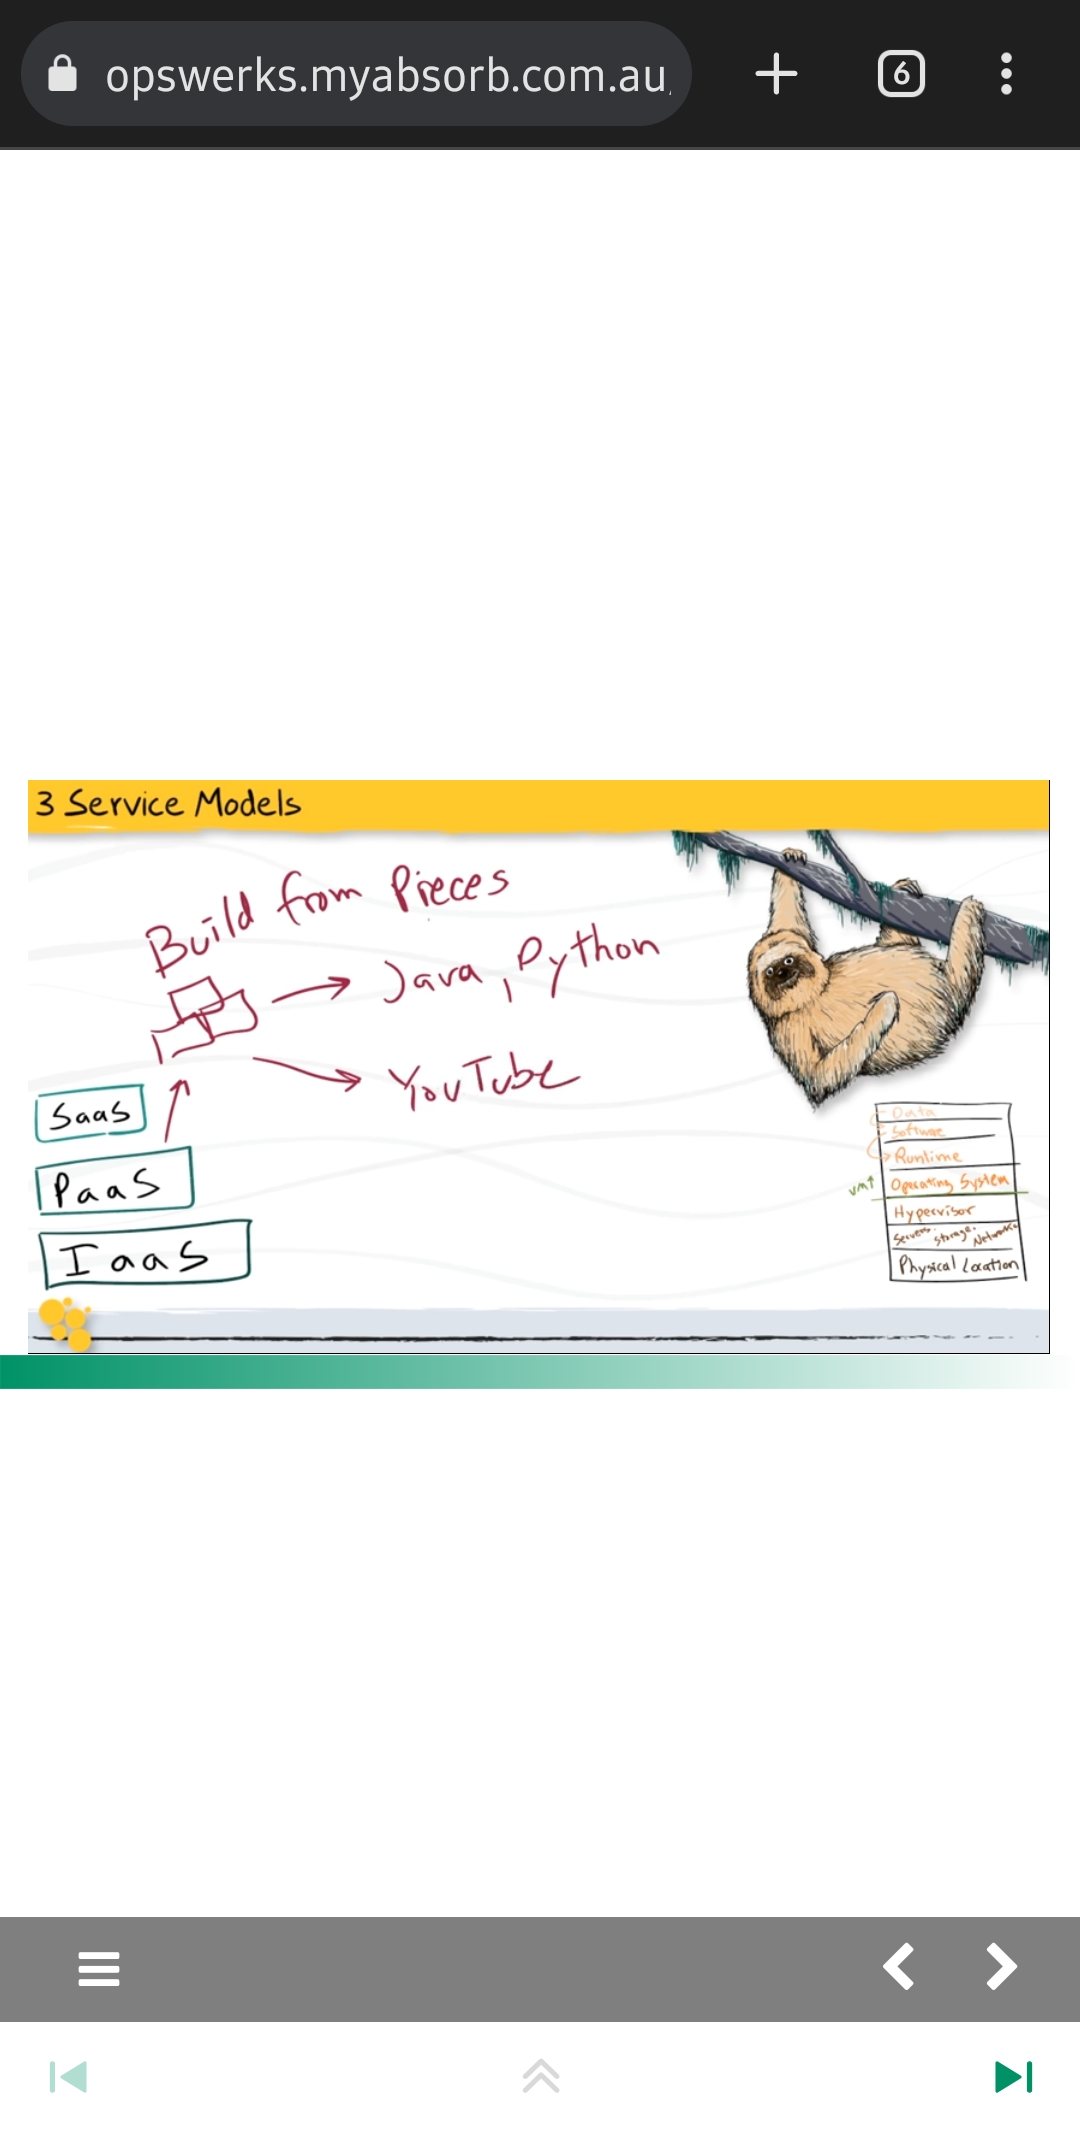 opswerks.myabsorb.com.au
6
3 Service Models
Build from Pieces
Java, Python
YouTube
SaaS
PaaS
IaaS
Data
Software
Runtime
vm↑
Operating System
Hypervisor
Servers. Storage. Network
Physical Location